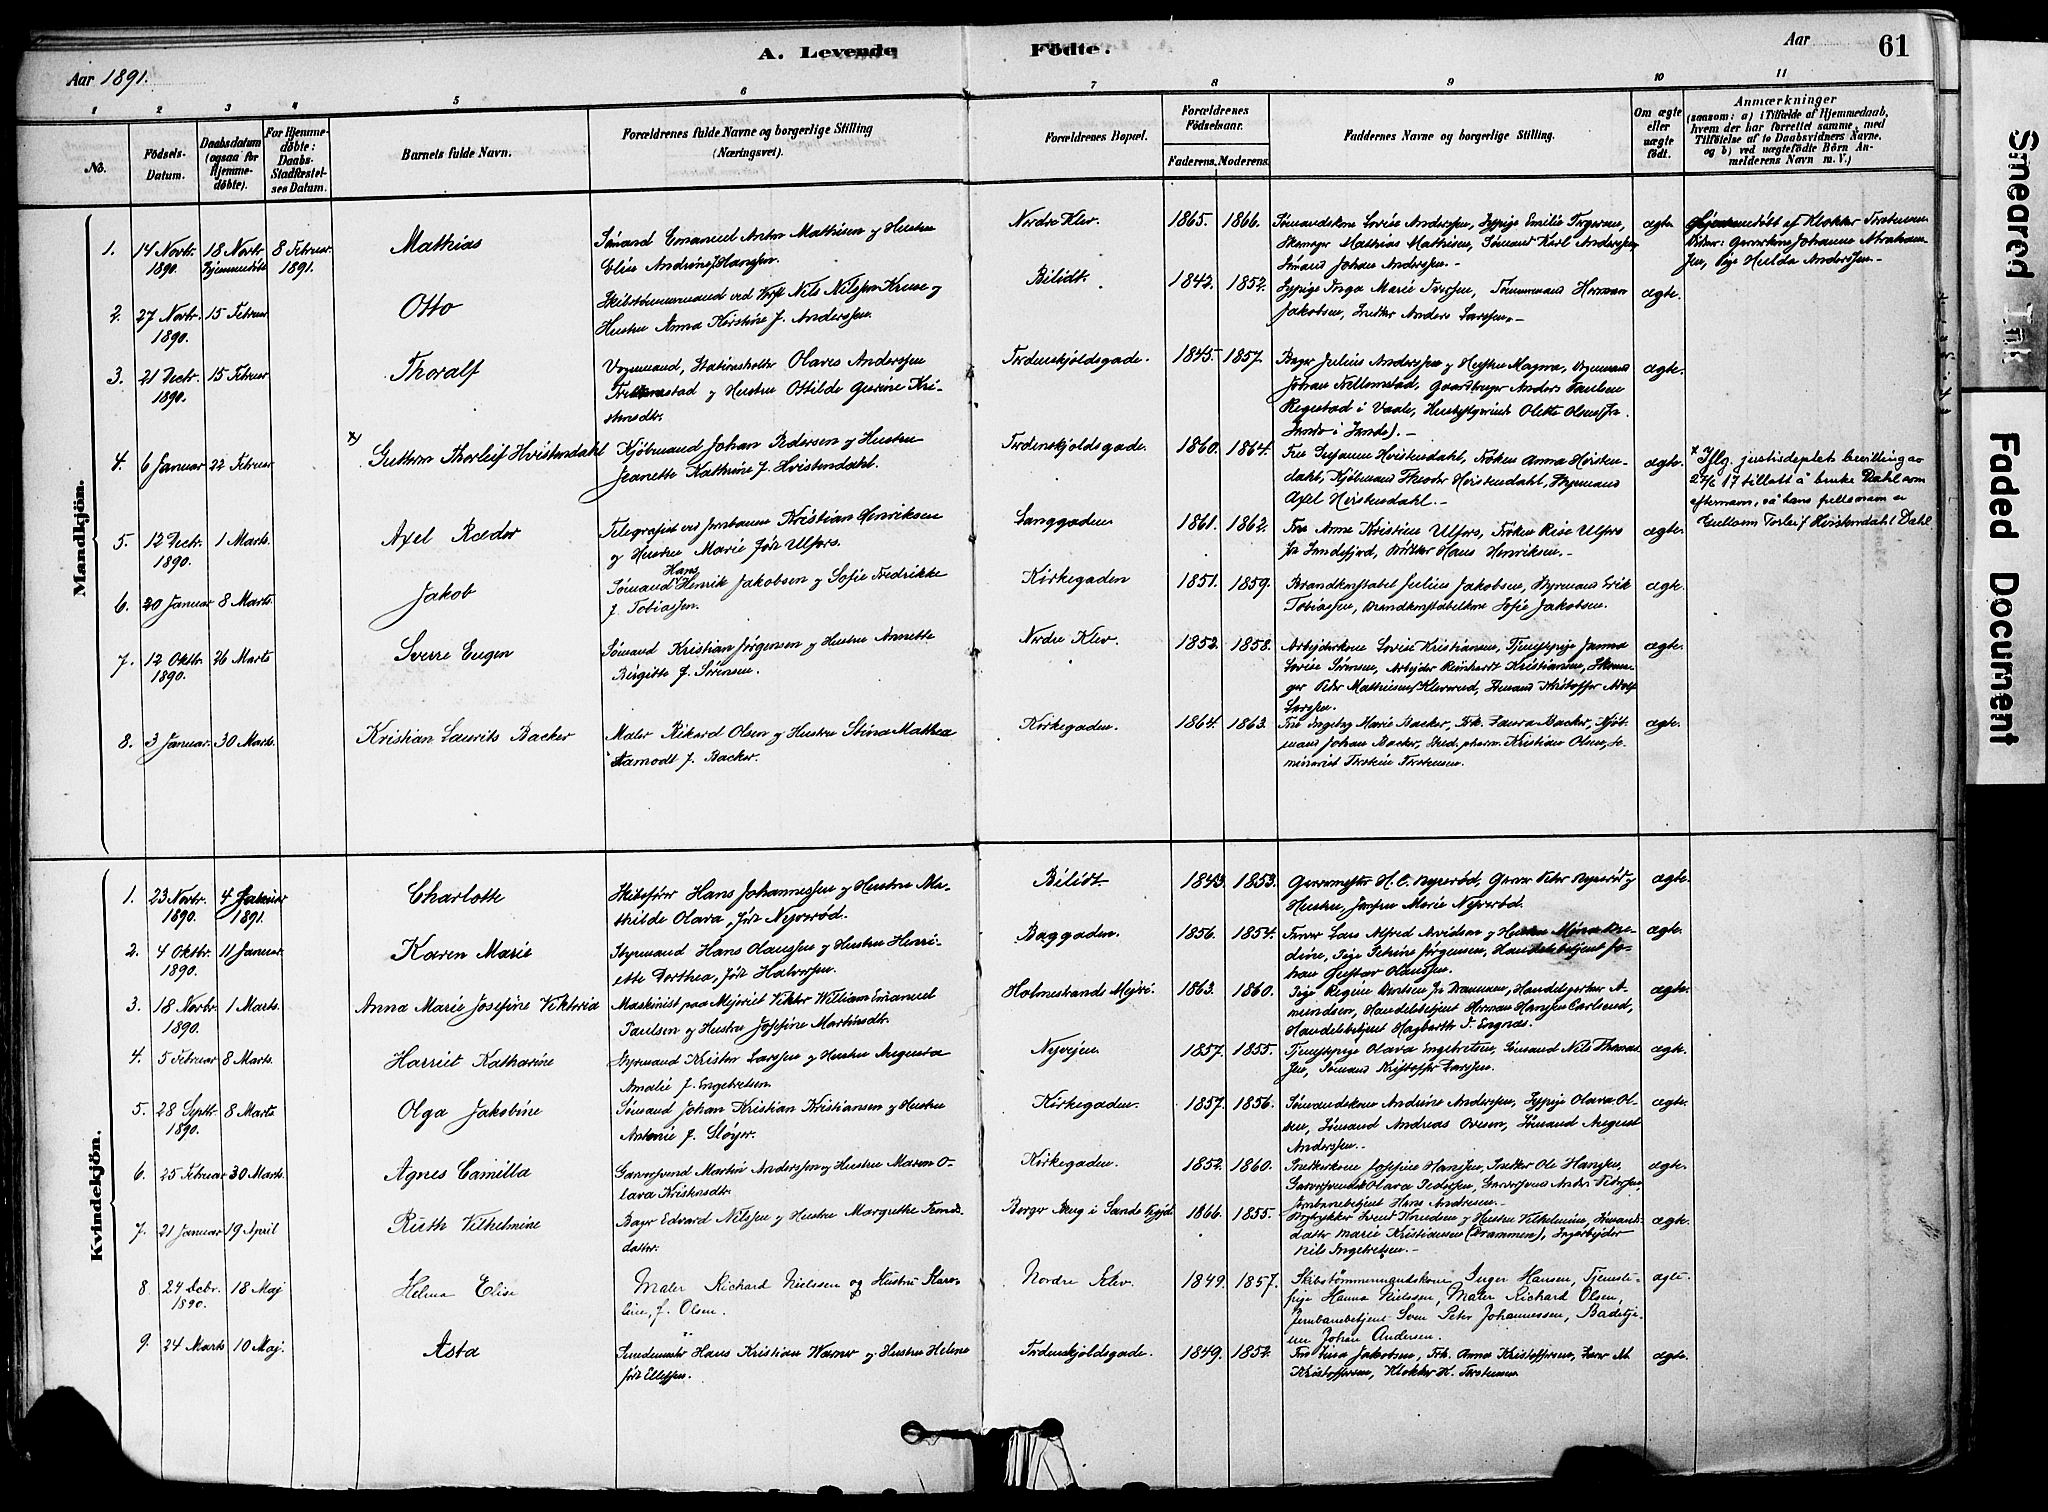 A. Levende Födte.
Aar
61
Aar 1891.
1 2 3 4 5 6 7 8 9 10 11
No.
Födsels-Datum.
Daabsdatum (ogsaa for Hjemmedöbte).
For Hjemmedöbte: Daabs-Stadfæstelses Datum.
Barnets fulde Navn.
Forældrenes fulde Navne og borgerlige Stilling
(Næringsvei).
Forældrenes Bopæl.
Forældrenes Födselsaar.
Faderens. Moderens.
Faddernes Navne og borgerlige Stilling
Om ægte eller uægte födt.
Anmærkninger
(saasom: a) i Tilfælde af Hjemmedaab,
hvem der har forrettet samme, med
Tilföielse af to Daabsvidners Navne,
og b) ved uægtefödte Börn Anmelderens Navn m. V.)
Mandkjön.
1. 14 Novbr. 1890. 18 Novbr. Hjemmedöbt 8 Februar 1891. Mathias
Sömand Emanuel Anton Mathisen og Hustru
Elise Andrine f. Hansen.
Nordre Klev. 1865. 1866.
Sömandskone Lovise Anderssen, Sypige Emilie
Skomager Mathias Mathisen, Sömand Karl Anderssen,
Sömand Johan Anderssen.
ægte.
Hjemmedöbt af Klokker Torstensen
Vidner: Johanne Abraham-
sen, Pige Hulda Anderssen.
2. 27 Novbr. 1890. 15 Februar Otto
Skibstömmermand ved Nils Nilssen Kruse og
Hustru Anna Kirstine f. Anderssen.
Bilidt. 1842. 1852.
Sypige Inga Marie Iversen, Tömmermand Herman
Jakobsen, Snedker Anders Larssen.
ægte.
3. 21 Decbr. 1890. 15 Februar Thoralf
Vognmand, Stationsholder Olaves Anderssen
og Hustru Ottilde Gurine Kri-
stensdtr.
Tordenskjoldsgade. 1845. 1857.
Bager Julius Anderssen og Hustru Magna, Vognmand
Johan Gaardbruger Anders Paulsen
i Vaale, Olette Olsen
ægte.
4. 6 Januar 22 Februar x) Guttorm Thorleif Hvistendahl
Kjöbmand Johan Pedersen og Hustru
Jeanette Kathrine f. Hvistendahl.
Tordenskjoldsgade. 1860. 1864.
Fru Susanne Hvistendahl, Fröken Anna Hvisten-
dahl, Kjöbmand Theodor Hvistendahl, Styrmand
Axel Hvistendahl.
ægte.
x Iflg. justisdeptets bevilling av
17 tillatt å bruke Dahl som
efternavn, så hans fulle navn er
Guttorm Torleif Hvistendahl Dahl.
5. 12 Decbr. 1890. 1 Marts. Axel Ræder
Telegrafist ved Jernbanen Kristian Henriksen
og Hustru Marie födt Ulfers.
Langgaden. 1861. 1862.
Fru Anne Kristine Ulfers, Fröken Ulfers
fra Sandefjord, Hans Henriksen.
ægte.
6. 20 Januar 8 Marts. Jakob
Sömand Hans Henrik Jakobsen og Sofie Fredrikke
f. Tobiassen.
Kirkegaden 1851. 1859.
Brandkonstabel Julius Jakobsen, Styrmand Erik
Tobiassen, Brandkonstabelkone Sofie Jakobsen.
ægte.
7. 12 Oktbr. 1890. 26 Marts Sverre Eugen
Sömand Kristian Jörgensen og Hustru Annette
Birgitte f. Sörensen.
Nordre Klev. 1852. 1858.
Arbeiderkone Lovise Kristiansen, Tjenestepige Janna
Lovise Sörensen, Arbeider Reinhardt Kristiansen, Skoma-
ger Peter Mathiesen Sömand Kristoffer Adolf
Larssen.
ægte.
8. 3 Januar. 30 Marts. Kristian Laurits Backer
Maler Rikard Olsen og Hustru Stina Mathea
f. Backer.
Kirkegaden. 1864. 1863.
Fru Ingeborg Marie Backer, Frk. Laura Backer, Kjöb-
mand Johan Backer, Stud. pharm. Kristian Olsen, Se-
minarist Torstein Torstensen.
ægte.
Kvindekjön.
1. 23 Novbr. 1890. 4 Januar 1891. Charlotte
Skibsförer Hans Johannessen og Hustru Ma-
thilde Olava, födt Nyverød.
Bilidt. 1843. 1853.
Garvermester H. C. Garver Peter og
Hustru, Marie Nyverød.
ægte.
2. 4 Oktbr. 1890. 11 Januar. Karen Marie
Styrmand Hans Olaussen og Hustru Henri-
ette Dorthea, födt Halvorsen.
Baggaden. 1856. 1854.
Farver Lars Alfred Arvidsen og Hustru
Pige Petrine Jörgensen, Handelsbetjent Jo-
han Gustav Olaussen.
ægte.
3. 18 Novbr. 1890. 1 Marts. Anna Marie Josefine Viktoria
Maskinist paa Mejeriet Viktor William Emanuel
Paulsen og Hustru Josefine Martinsdtr.
Holmestrands Mejeri 1863. 1860.
Pige Regine Berntsen fra Drammen, A-
mundsen, Handelsbetjent Herman Hansen Carlsrud,
Handelsbetjent Hagbarth F. Engnæs.
ægte.
4. 5 Februar 8 Marts. Harriet Katharine
Styrmand Kristen Larssen og Hustru Augusta
Amalie f. Engebretsen.
Nyvejen. 1857. 1855.
Tjenestepige Olava Engebretsen, Sömand Nils Thomas-
sen, Sömand Kristoffer Larssen.
ægte.
5. 28 Septbr. 1890. 8 Marts. Olga Jakobine
Sömand Johan Kristian Kristiansen og Hustru
Antonie f. Sløyer.
Kirkegaden. 1857. 1856.
Sömandskone Andrine Anderssen, Sypige Olava Ol-
sen, Sömand Andreas Ovesen, Sömand August
Anderssen.
ægte.
6. 25 Februar 30 Marts. Agnes Camilla
Garversvend Martin Anderssen og Hustru Maren O-
lava Kristensdtr.
Kirkegaden. 1852. 1860.
Snedkerkone Josefine Hanssen, Snedker Ole Hanssen,
Olava Pedersen, Garversvend Anders Pedersen,
Jernbanebetjent Hans Andresen.
ægte.
7. 21 Januar 19 April Ruth Vilhelmine
Bager Edvard Nilssen og Hustru Margrethe
datter.
Berger Brug i Sande 1866. 1855.
Bogtrykker Svend Knudsen og Hustru Vilhelmine,
datter Marie Kristiansen (Drammen),
Nils Engebretsen.
ægte.
8 24 Decbr. 1890. 18 Maj Helma Elise
Maler Richard Nielssen og Hustru Karo-
line, f. Olsen.
Nordre Klev. 1849. 1857.
Skibstömmermandskone Inger Hansen, Tjeneste-
pige Hanna Nielssen, Maler Richard Olsen,
Jernbanebetjent Sven Peter Johannessen,
Johan Andersen.
ægte.
9. 24 Marts 10 Maj. Asta
Smedemester Hans Kristian Warner og Hustru Helene
födt Ellefsen.
Tordenskjoldsgade. 1849. 1852.
Fru Jakobsen, Frk. Anna Kristoffersen, M.
Kristoffersen, Klokker K. Torstensen
ægte.
Smeared Ink
Faded Document